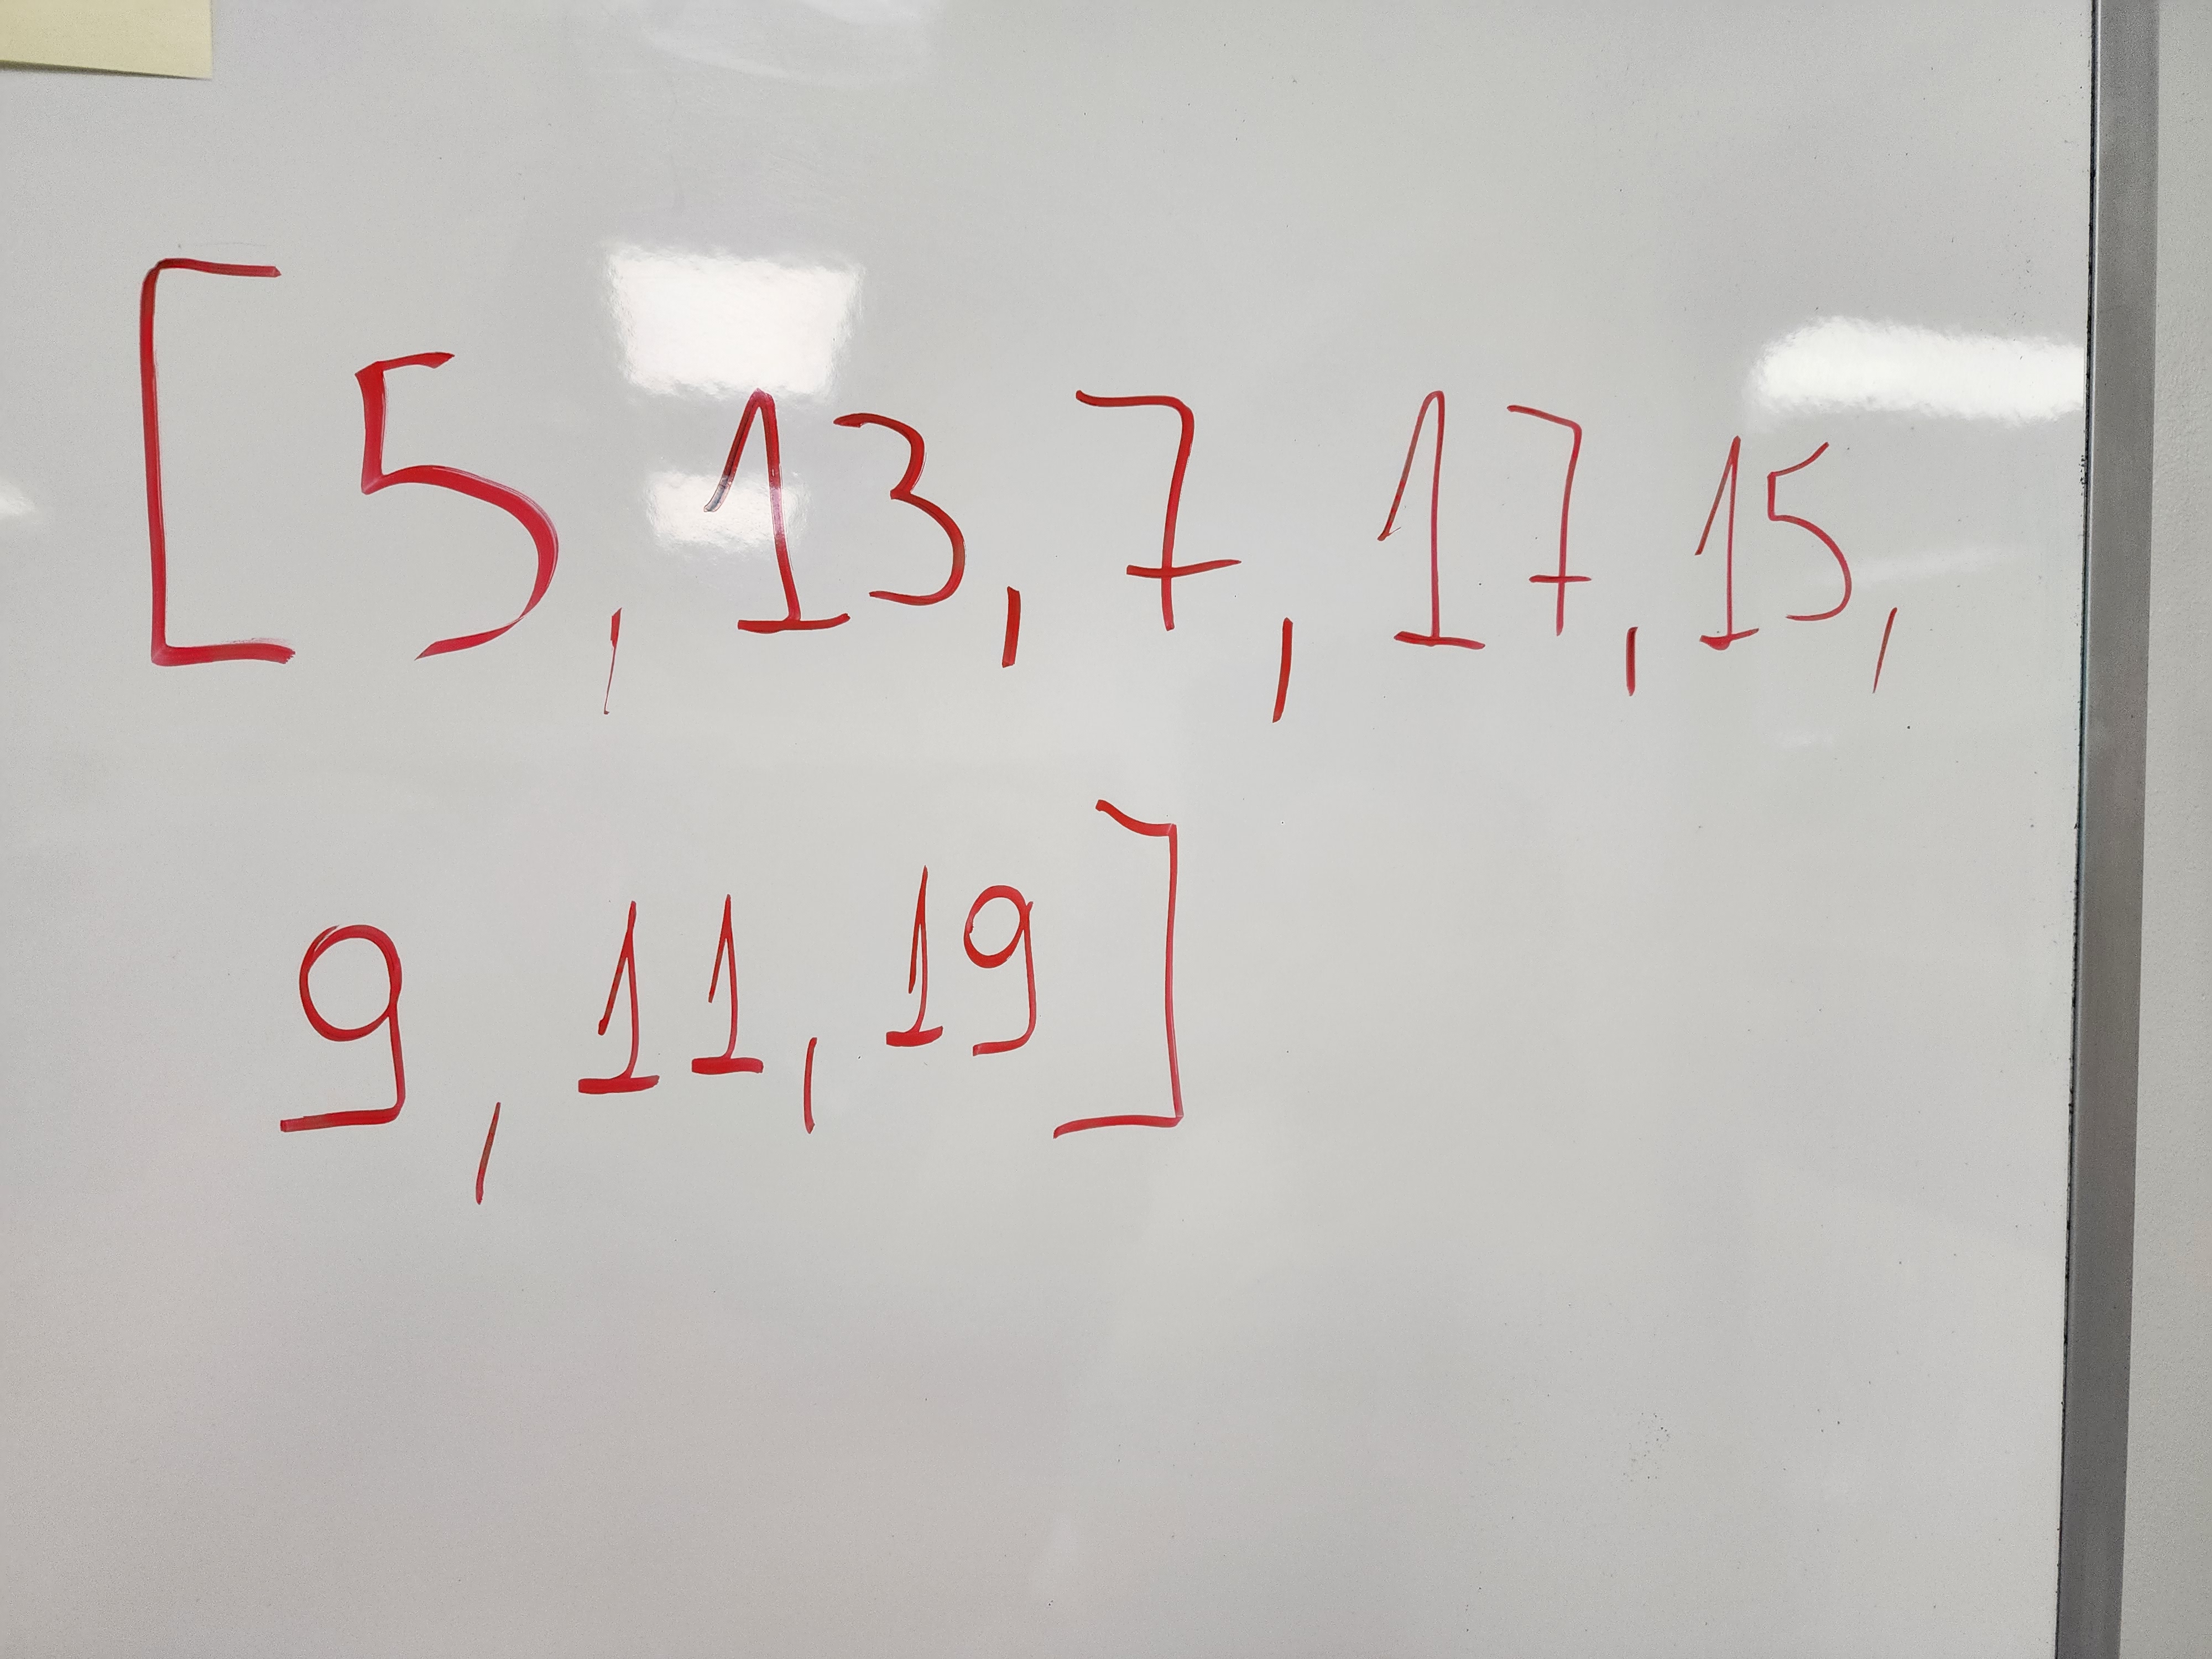 [5, 13, 7, 17, 15,
9, 11, 19]